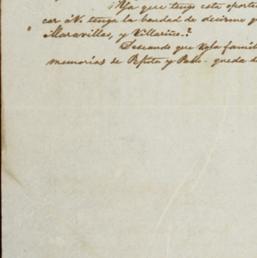 Ya que tengo esta oportu
car á V. tenga la bondad de decirme q
Maravillas, y Villarino.?
Deseando que V. y la famil
memorias de Pepita y Pablo queda de